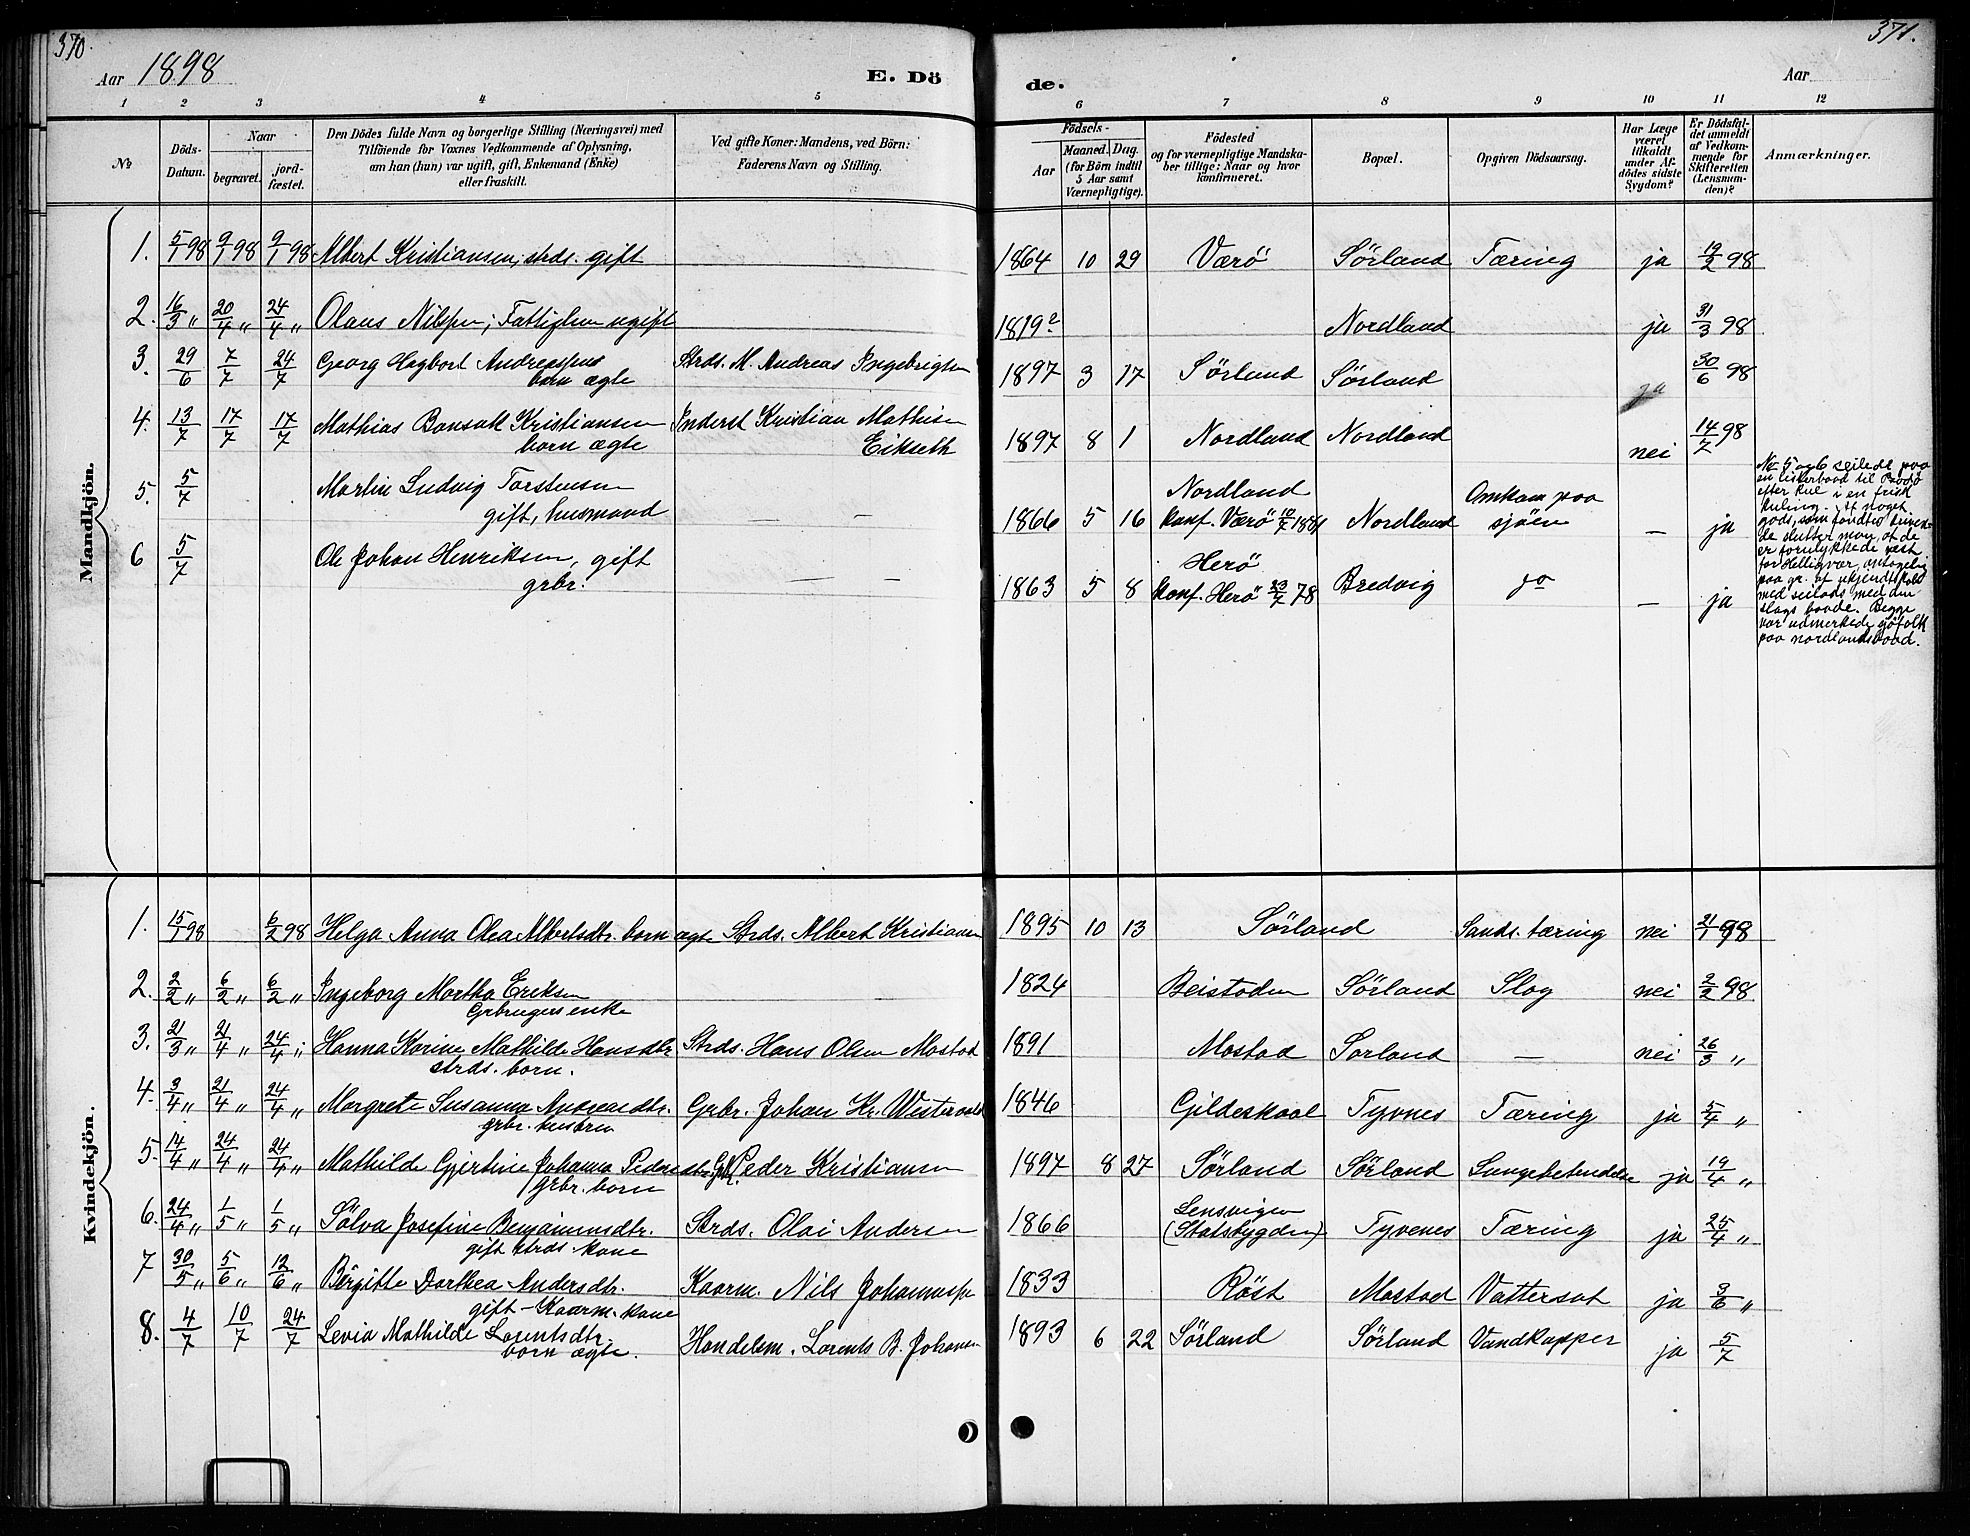 370.
Aar 1898
E. Dö
de.
Aar
371.
1 2 3 4 5 6 7 8 9 10 11 12
№
Döds-Datum.
Naar
begravet.
jord-fæstet.
Den Dödes fulde Navn og borgerlige Stilling (Næringsvei) med
Tilföiende för Voxnes Vedkommende af Oplysning,
om han (hun) var ugift, gift, Enkemand (Enke)
eller fraskilt.
Ved gifte Koner: Mandens, ved Börn:
Faderens Navn og Stilling.
Födsels-
Aar
Maaned. Dag.
(for Börn indtil
5 Aar samt
Værnepligtige).
Födested
og for værnepligtige Mandska-
ber tillige: Naar og hvor
konfirmeret.
Bopæl.
Opgiven Dödsaarsag.
Har Læge
været
tilkaldt
under Af-
dödes sidste
Sygdom?
Er Dödsfal-
det anmeldt
af Vedkom-
mende for
Skifteretten
(Lensman-
den)?
Anmærkninger.
Mandkjön.
1. 5/1 98 9/1 98 9/1 98 Albert Kristiansen, strds. gift 1864 10 29 Værö Sörland Tæring ja 19/2 98
2. 16/3 " 20/4 " 24/4 " Olaus Nilssen; Fattiglem ugift 1819? Nordland ja 31/3 98
3. 29/6 7/7 24/7 Georg Hagbart Andreassens Strds. M. Andreas Ingebrigtsen 1897 3 17 Sörland Sörland ja 30/6 98
barn ægte
4. 13/7 17/7 17/7 Mathias Bonsak Kristiansen Inderst Kristian Mathisen 1897 8 1 Nordland Nordland nei 14/7 98
barn ægte Eikseth
5. 5/7 Martin Ludvig Torstensen Nordland Omkom paa
gift, husmand — — 1866 5 16 konf. Værö 10/7 1881 Nordland sjöen — ja
6 5/7 Ole Johan Henriksen, gift Herö
grbr. — — 1863 5 8 konf. Herö 23/7 78 Bredvig do — ja
No 5 og 6 seilede paa
en listerbaad til Bodö
efter kul i en frisk
kuling. Af noget
gods, som fandtes
de slutter man, at de
er forulykkede vest
for Helligvær, antagelig
paa gr. af ukjendtskab
med seilads med den
slags baade. Begge
var udmerkede sjöfolk
paa nordlandsbaad.
Kvindekjön.
1. 15/1 98 6/2 98 Helga Anna Olea Albertsdtr. barn ægte Strds. Albert Kristiansen 1895 10 13 Sörland Sands. tæring nei 21/1 98
2. 2/2 " 6/2 " 6/2 " Ingeborg Martha Eriksen 1824 Beistaden Sörland Slag nei 2/2 98
Grbrugers enke
3. 21/3 " 21/4 " 24/4 " Hanna Karine Mathilde Hansdtr. Strds. Hans Olsen Mostad 1891 Mostad Sörland — nei 26/3 "
strds. barn.
4. 3/4 " 21/4 " 24/4 " Margrete Susanna Andreasdtr. Grbr. Johan Kr. Westervold 1846 Gildeskaal Tyvnes Tæring ja 5/4 "
grbr. hustru
5. 14/4 " 24/4 " 24/4 " Mathilde Gjertine Johanna Pedersdtr. Grbr. Peder Kristiansen 1897 8 27 Sörland Sörland Lungebetændelse ja 19/4 "
grbr. barn
6. 24/4 " 1/5 " 1/5 " Sölva Josefine Benjaminsdtr. Strds. Olai Andersen 1866 Lensvigen Tyvenes Tæring ja 25/4 "
gift strds. kone (Statsbygden)
7 30/5 " 5/6 " 12/6 " Birgitte Dorthea Andersdtr. Kaarm. Nils Johannessen 1833 Röst Mostad Vattersot ja 3/6 "
gift - Kaarm. kone
8. 4/7 10/7 24/7 Levia Mathilde Lorentsdtr. Handelsm. Lorents B. Johansen 1893 6 22 Sörland Sörland Vandkopper ja 5/7
barn ægte.